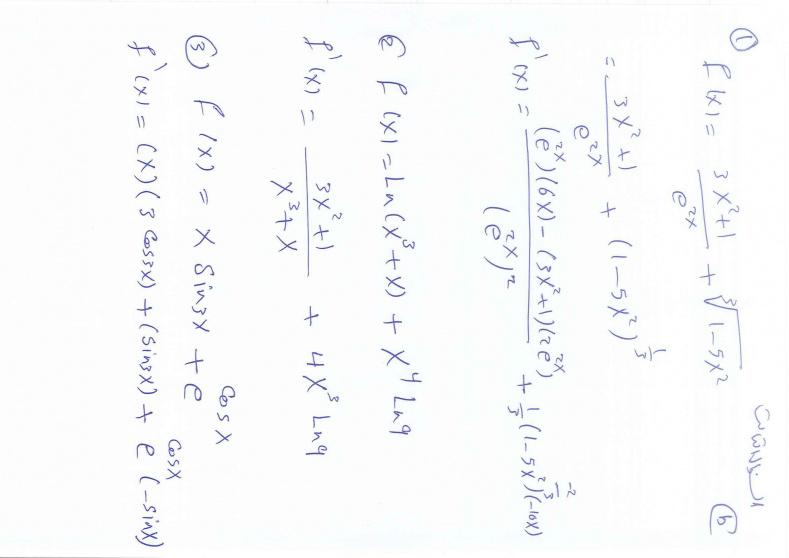 ①
f(x) = \frac{3x^2+1}{e^{2x}} + \sqrt[3]{1-5x^2}
= \frac{3x^2+1}{e^{2x}} + (1-5x^2)^{\frac{1}{3}}
f'(x) = \frac{(e^{2x})(6x)-(3x^2+1)(2e^{2x})}{(e^{2x})^2} + \frac{1}{3}(1-5x^2)^{\frac{-2}{3}}(-10x)
② f(x) = Ln(x^3+x) + x^4 Ln9
f'(x) = \frac{3x^2+1}{x^3+x} + 4x^3 Ln9
③ f(x) = x Sin3x + e^{Cosx}
f'(x) = (x)(3 Cos3x) + (Sin3x) + e^{Cosx}(-Sinx)